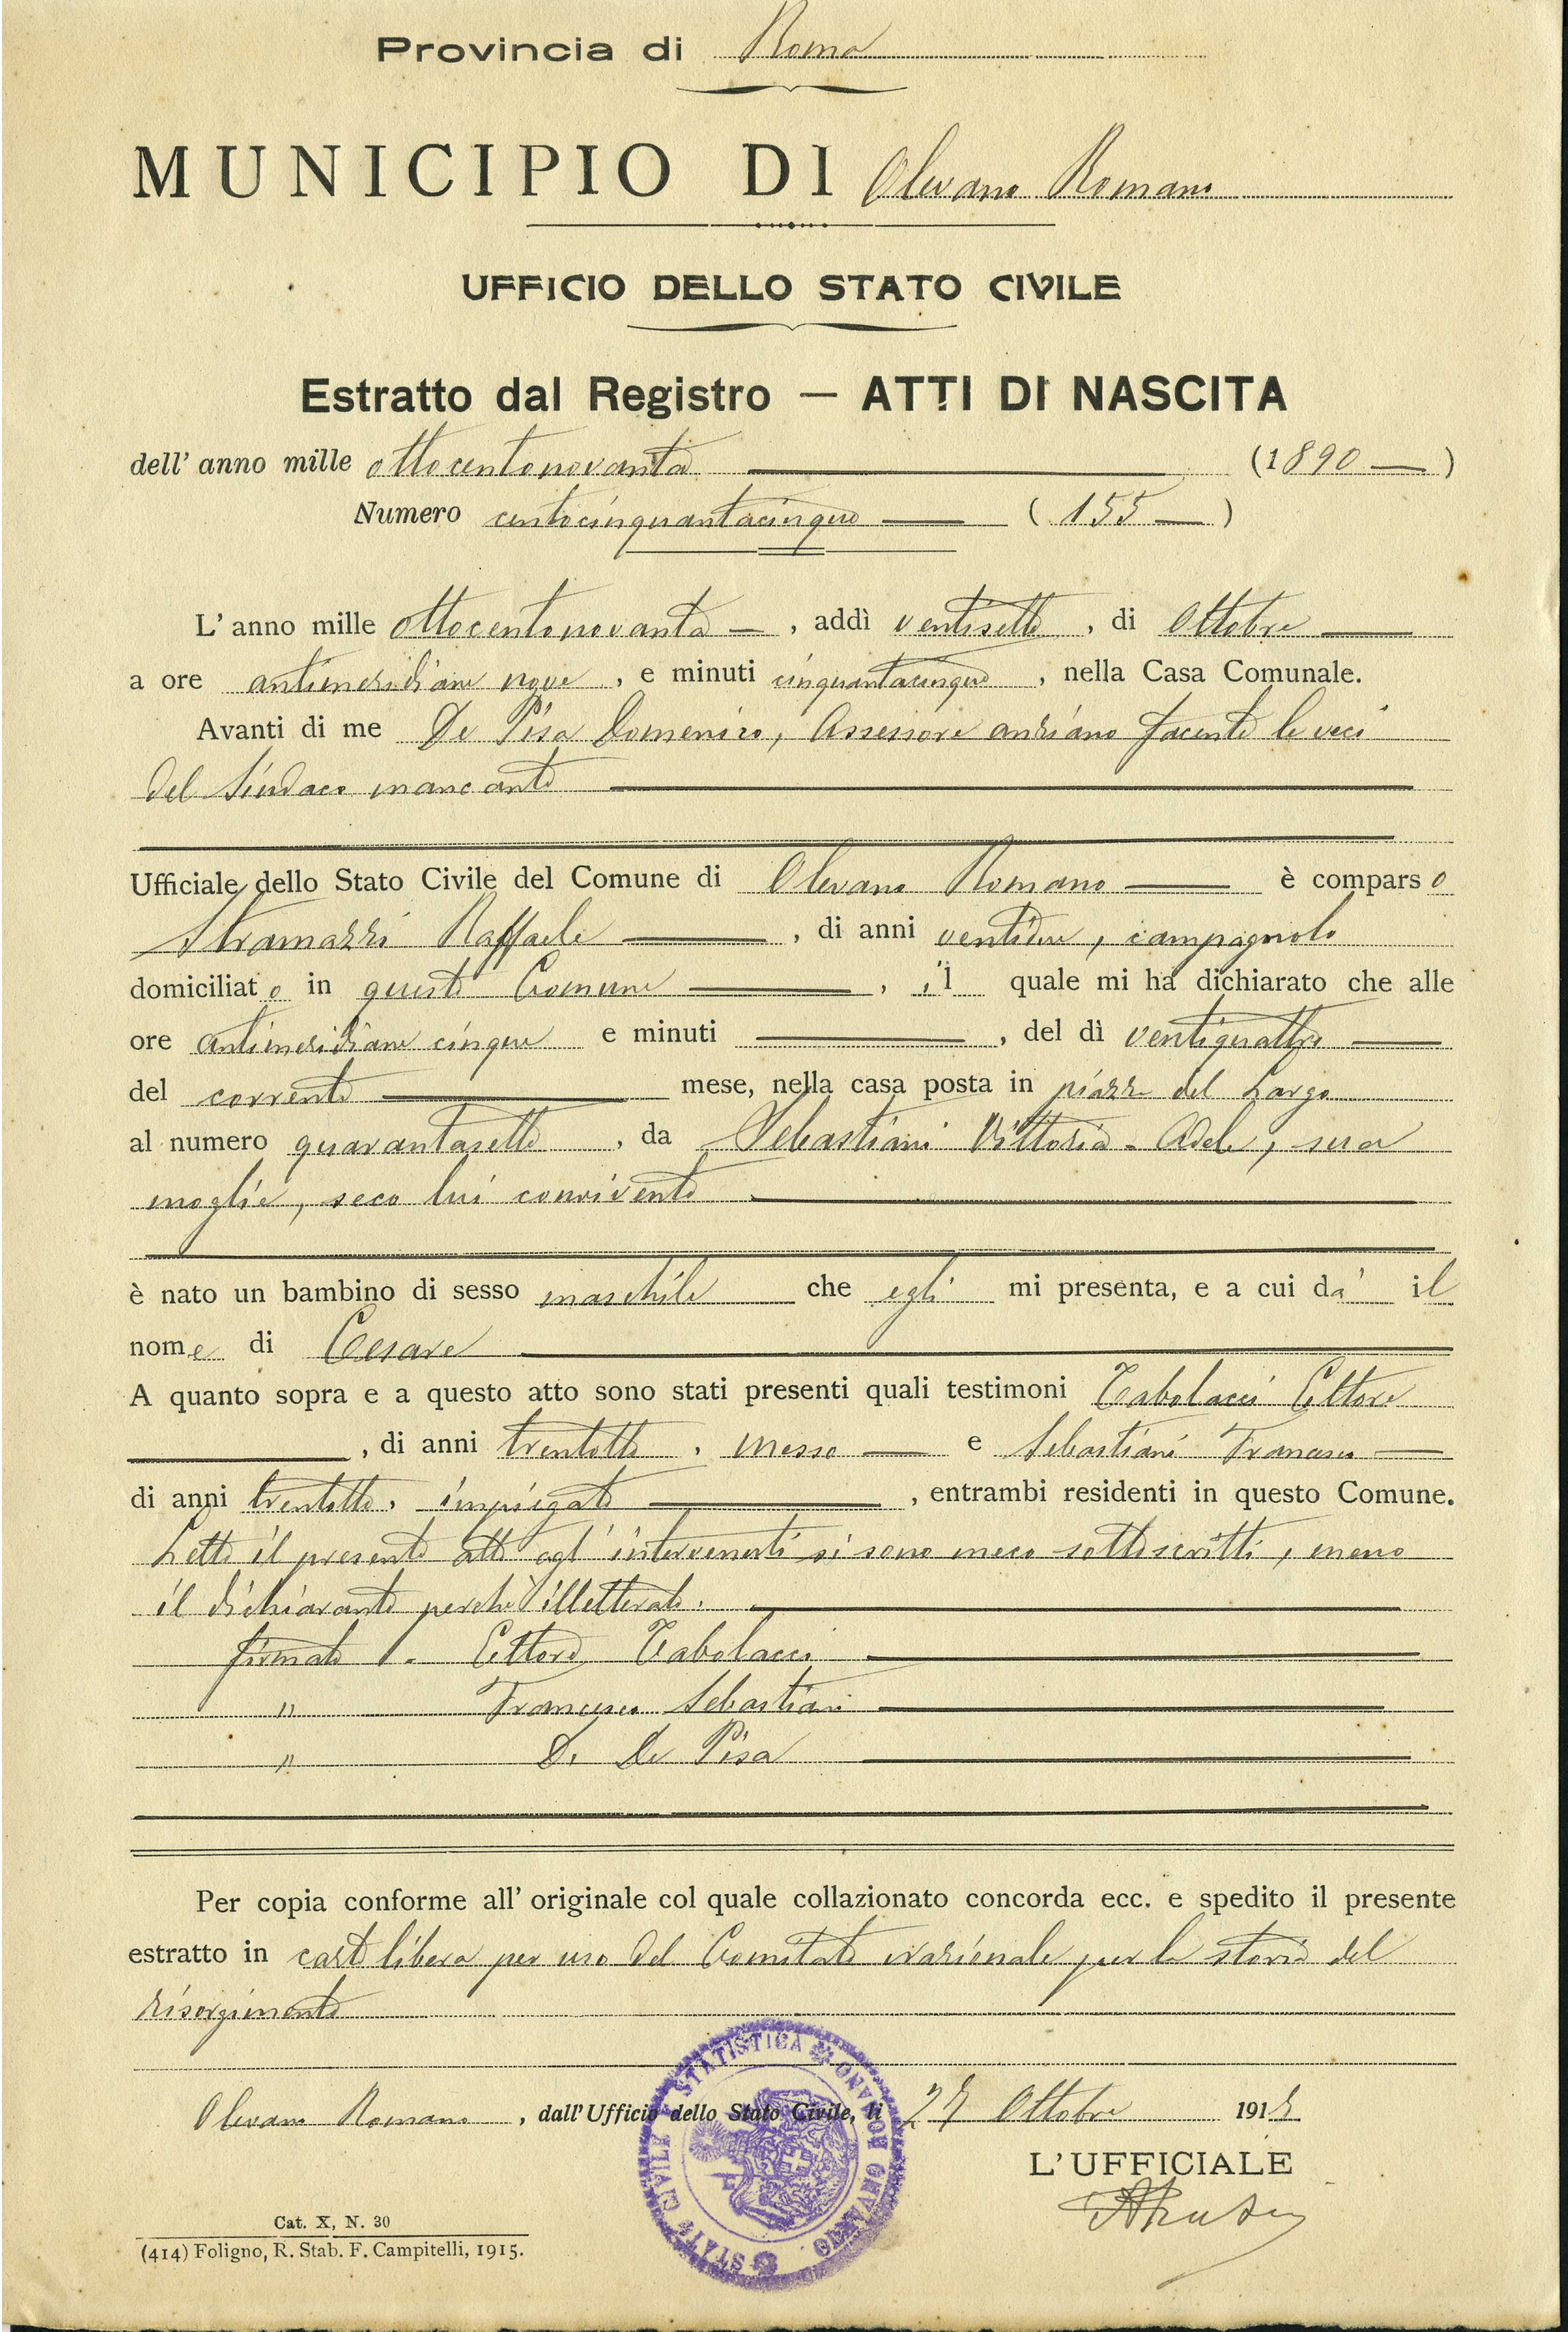 Provincia di Roma
MUNICIPIO DI Olevano Romano
UFFICIO DELLO STATO CIVILE
Estratto dal Registro — ATTI DI NASCITA
dell' anno mille ottocentonovanta (1890 — )
Numero centocinquantacinque — ( 155 — )
L' anno mille ottocentonovanta — , addì ventisette , di Ottobre
a ore antimeridiane nove , e minuti cinquantacinque , nella Casa Comunale.
Avanti di me De Pisa Domenico, Assessore anziano facente le veci
del Sindaco mancante
Ufficiale dello Stato Civile del Comune di Olevano Romano — è comparso
Stramazzi Raffaele — , di anni ventidue, campagnolo
domiciliato in questo Comune — , il quale mi ha dichiarato che alle
ore antimeridiane cinque e minuti — , del dì ventiquattro —
del corrente — mese, nella casa posta in piazza del Largo
al numero quarantasette , da Sebastiani Vittoria - Adele, sua
moglie, seco lui convivente
è nato un bambino di sesso maschile che egli mi presenta, e a cui dà il
nome di Cesare
A quanto sopra e a questo atto sono stati presenti quali testimoni Tabolacci Ettore
— , di anni trentotto , messo — e Sebastiani Francesco —
di anni trentotto, impiegato — , entrambi residenti in questo Comune.
Letto il presente atto agl' intervenuti si sono meco sottoscritti, meno
il dichiarante perchè illetterato.
firmato . - Ettore Tabolacci
" Francesco Sebastiani
" D. De Pisa
Per copia conforme all' originale col quale collazionato concorda ecc. e spedito il presente
estratto in carta libera per uso del Comitato nazionale per la storia del
risorgimento
STATO CIVILE E STATISTICA OLEVANO ROMANO
Olevano Romano , dall' Ufficio dello Stato Civile, li 27 Ottobre 191
L' UFFICIALE
Cat. X, N. 30
(414) Foligno, R. Stab. F. Campitelli, 1915.